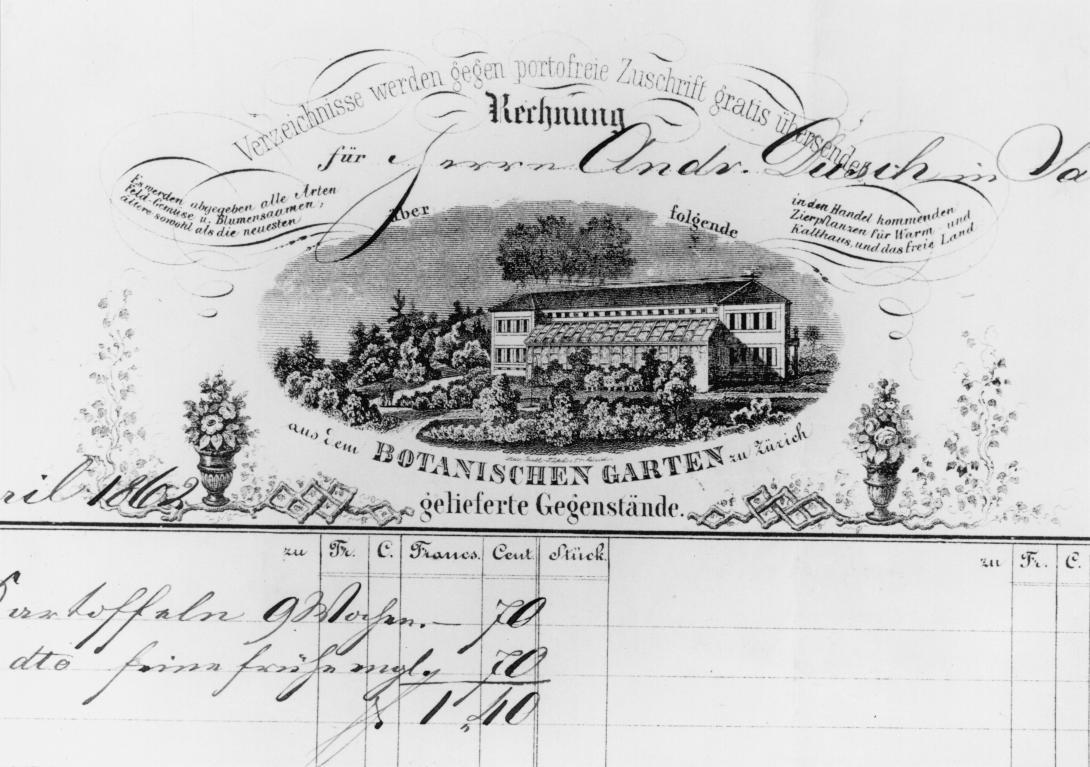 Verzeichnisse werden gegen portofreie Zuschrift gratis übersendet
Rechnung
für Herrn Andr. in
Es werden abgegeben alle Arten
Feld-Gemüse u. Blumensaamen,
ältere sowohl als die neuesten
in den Handel kommenden
Zierpflanzen für Warm und
Kalthaus, und das freie Land
über folgende
aus dem BOTANISCHEN GARTEN zu Zürich
gelieferte Gegenstände.
ril 1862
zu Fr. C. Francs. Cent. Stück. zu Fr. C.
Kartoffeln 9 Wochen.— 70
dto feine frühe engl. 70
1 „ 40